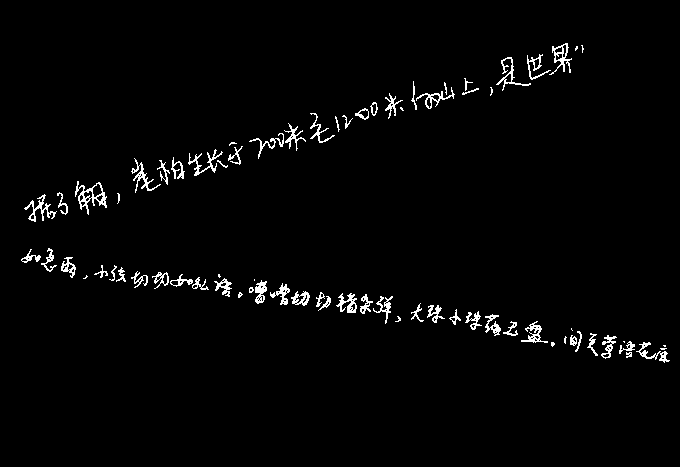 据了解，崖柏生长于700米至1200米的山上，是世界"
如急雨，小弦切切如私语。嘈嘈切切错杂弹，大珠小珠落玉盘。间关莺语花底